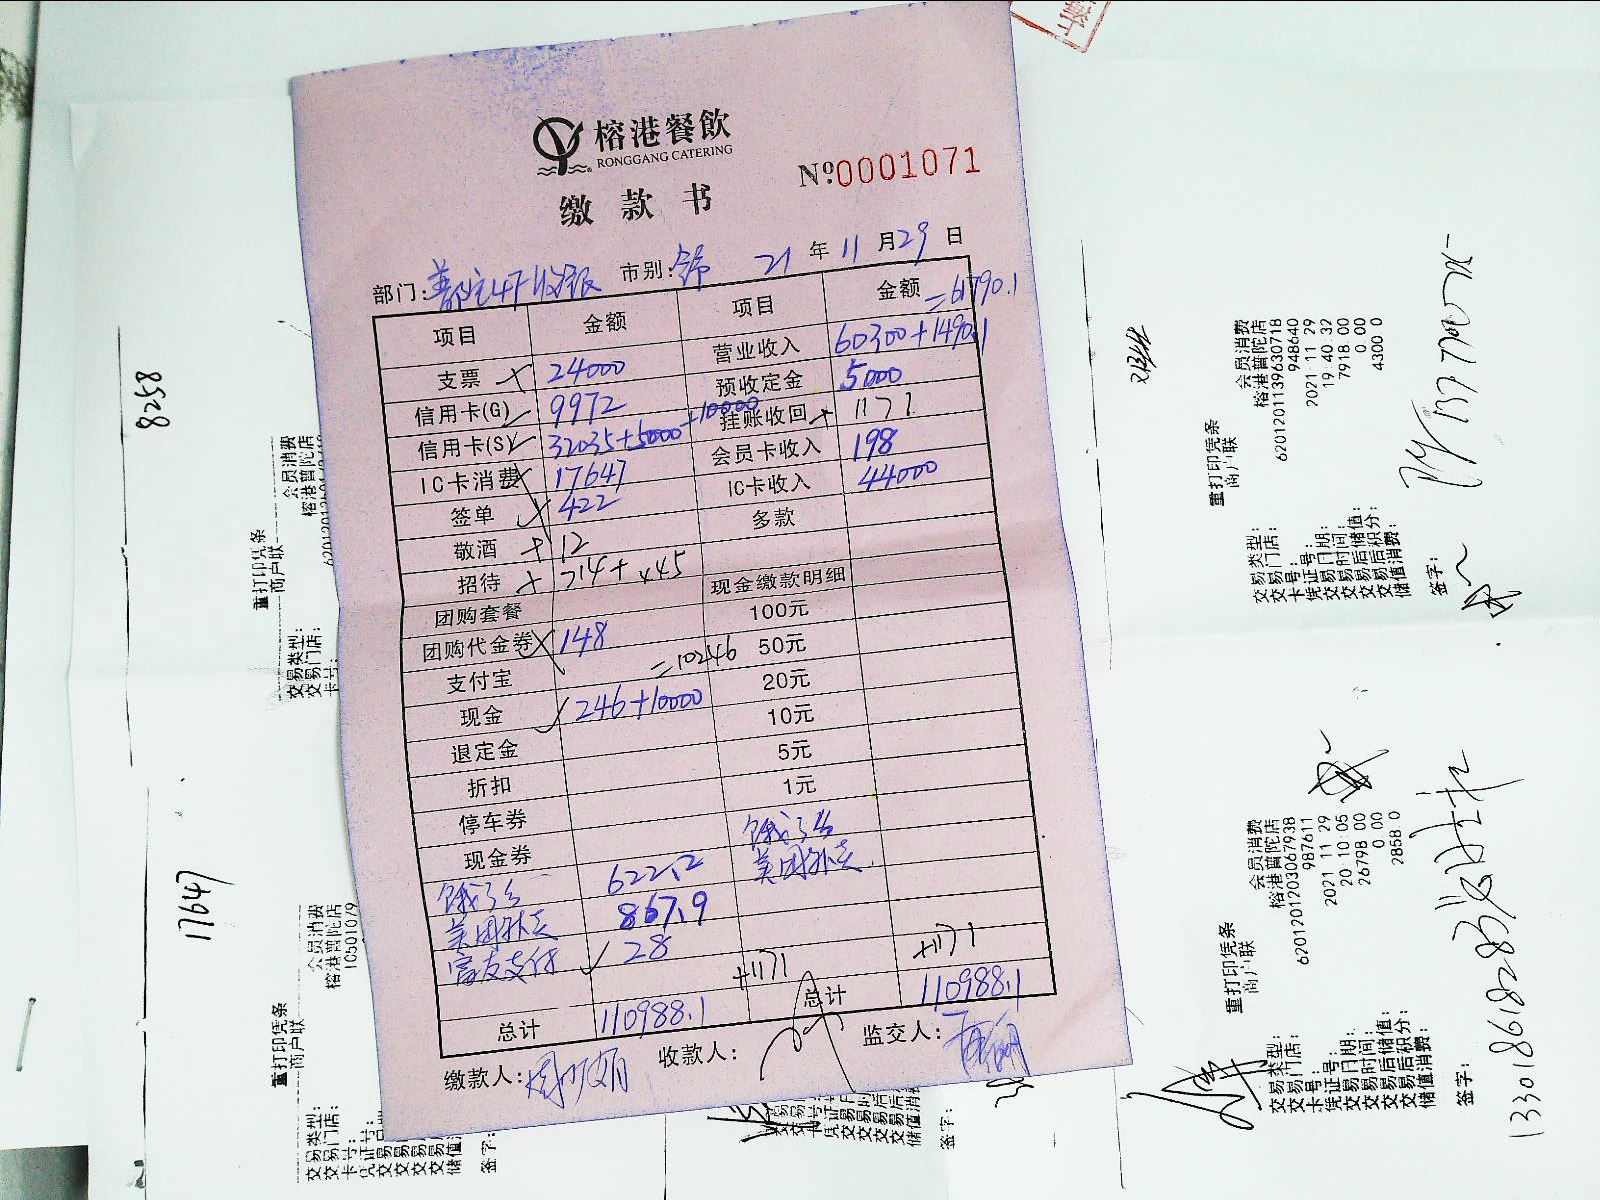 榕港餐飲
RONGGANG CATERING
缴款书
№0001071
部门: 市别: 21年11月29日
=61790.1
项目 金额 项目 金额
支票 24000 营业收入 60300+1490.1
信用卡(G) 9972 预收定金 5000
信用卡(S) 32035+5000+10000 挂账收回 1171
IC卡消费 17647 会员卡收入 198
签单 422 IC卡收入 44000
敬酒 12 多款
招待 714+ 现金缴款明细
团购套餐 100元
团购代金券 148 50元
支付宝 =10246 20元
现金 246+10000 10元
退定金 5元
折扣 1元
停车券 饿了么
现金券 美团外卖
饿了么 622.2
美团外卖 867.9
富友支付 28
+1171 +1171
总计 110988.1 总计 110988.1
缴款人: 收款人: 监交人:
8258
重打印凭条
商户联
交易类型: 会员消费
交易门店: 榕港普陀店
卡号:
17647
重打印凭条
商户联
交易类型: 会员消费
交易门店: 榕港普陀店
卡号:
凭证号:
签字:
重打印凭条
商户联
交易类型: 会员消费
交易门店: 榕港普陀店
卡号: 6201201139630718
凭证号: 948640
交易日期: 2021 11 29
交易时间: 19 40 32
交易后储值: 7918 00
交易后积分: 0 00
储值消费: 4300 0
签字:
重打印凭条
商户联
交易类型: 会员消费
交易门店: 榕港普陀店
卡号: 6201201203067938
凭证号: 987611
交易日期: 2021 11 29
交易时间: 20 10 05
交易后储值: 26798 00
交易后积分: 0 00
储值消费: 2858 0
签字:
13301861828
签字: